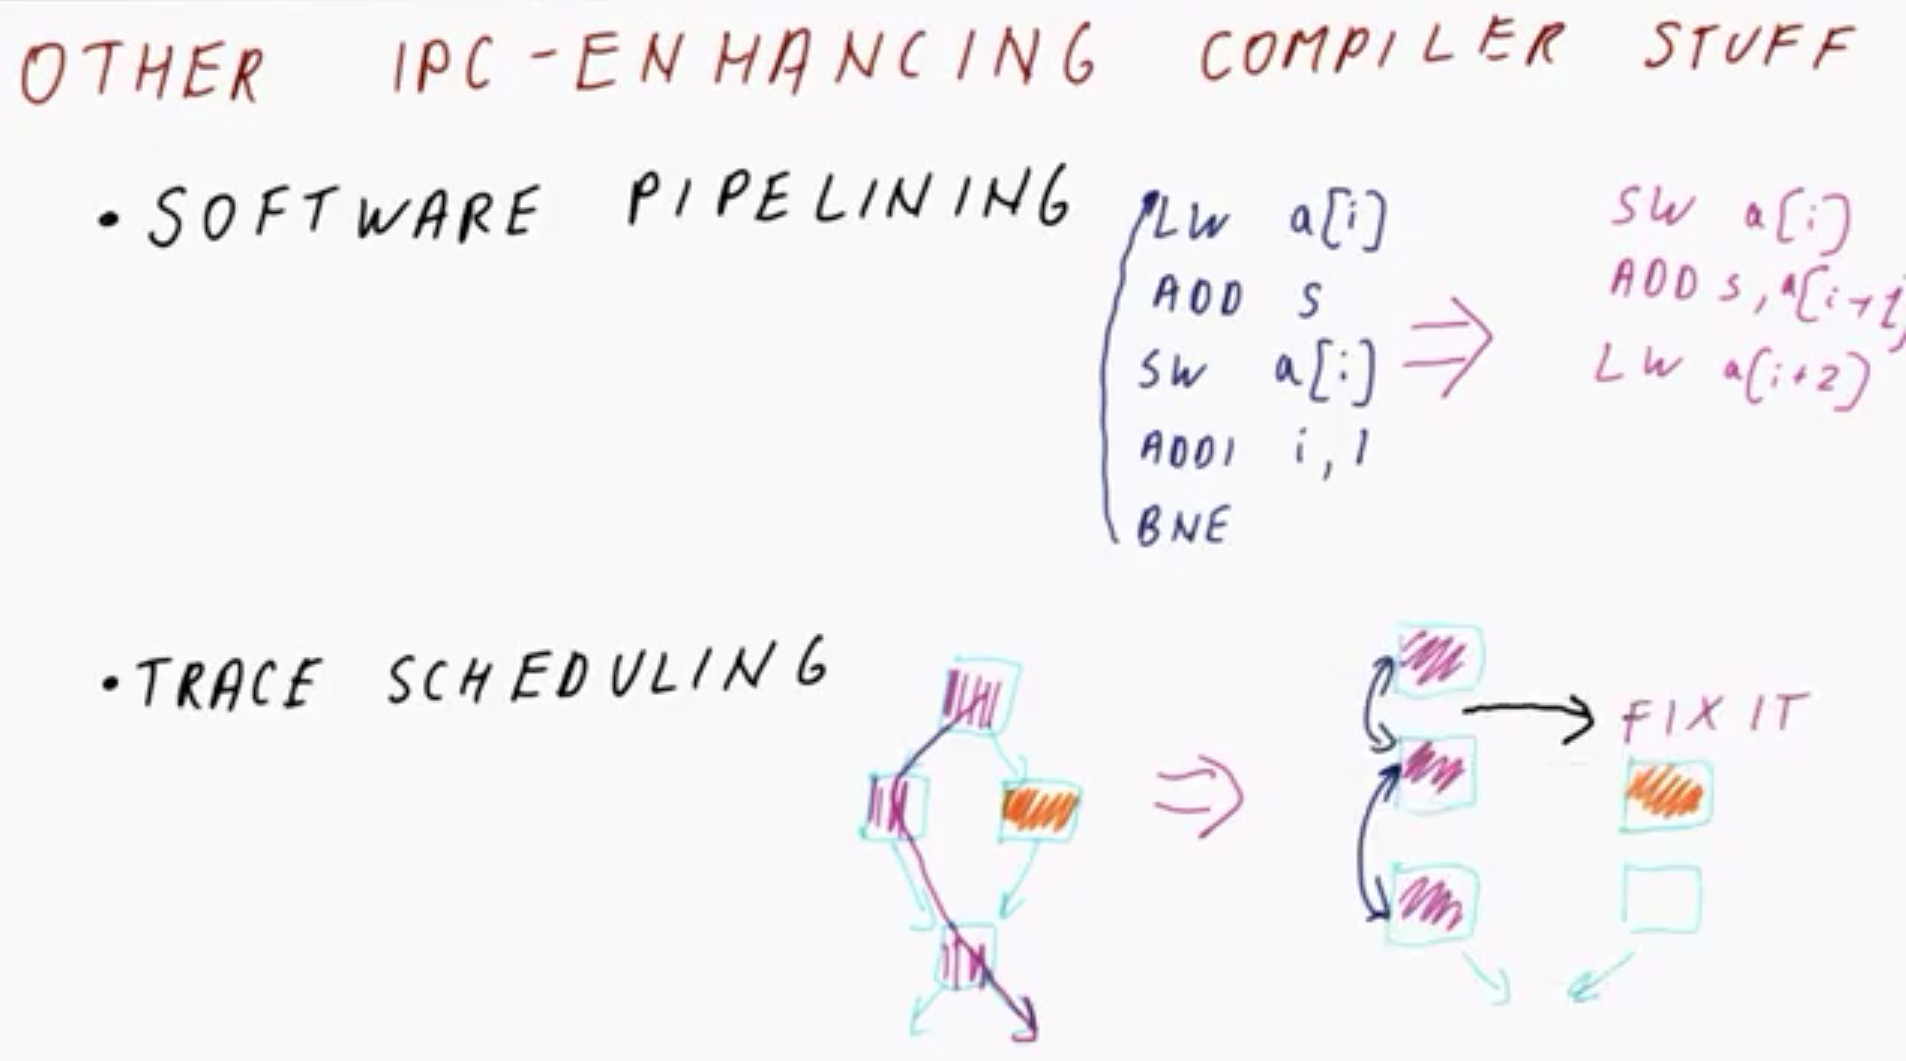 OTHER IPC-ENHANCING COMPILER STUFF
• SOFTWARE PIPELINING
LW a[i]
ADD S
SW a[i]
ADDI i, 1
BNE
SW a[i]
ADD S, a[i+1]
LW a[i+2]
• TRACE SCHEDULING
FIX IT